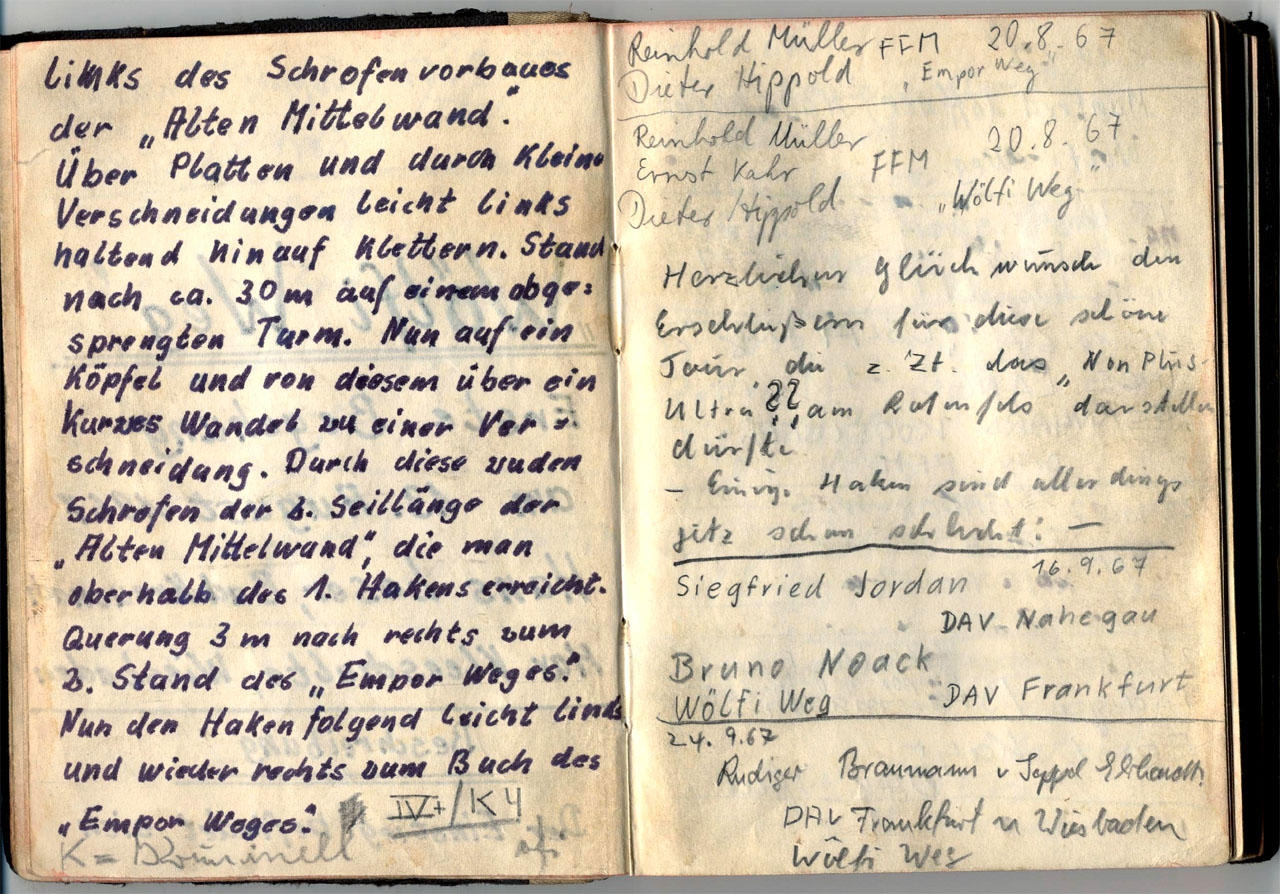 links des Schrofenvorbaues
der „Alten Mittelwand".
Über Platten und durch kleine
Verschneidungen leicht links
haltend hinauf klettern. Stand
nach ca. 30 m auf einem abge=
sprengten Turm. Nun auf ein
Köpfel und von diesem über ein
kurzes Wandel zu einer Ver=
schneidung. Durch diese zu den
Schrofen der 2. Seillänge der
„Alten Mittelwand", die man
oberhalb des 1. Hakens erreicht.
Querung 3 m nach rechts zum
2. Stand des „Empor Weges".
Nun den Haken folgend leicht links
und wieder rechts zum Buch des
„Empor Weges". IV+/K4
K = Kriminell
Reinhold Müller FFM 20.8.67
Dieter Hippold „Empor Weg"
Reinhold Müller 20.8.67
Ernst Kahr FFM
Dieter Hippold „Wölfi Weg"
Herzlichen Glückwunsch den
Erschließern für diese schöne
Tour, die z. Zt. das „Non Plus-
Ultra" ?? am Rotenfels darstellen
dürfte.
– Einige Haken sind allerdings
jetz schon schlecht! –
16.9.67
Siegfried Jordan
DAV Nahegau
Bruno Noack
Wölfi Weg DAV Frankfurt
24.9.67
Rudiger Braumann u Seppel
DAV Frankfurt u Wiesbaden
Wölfi Weg